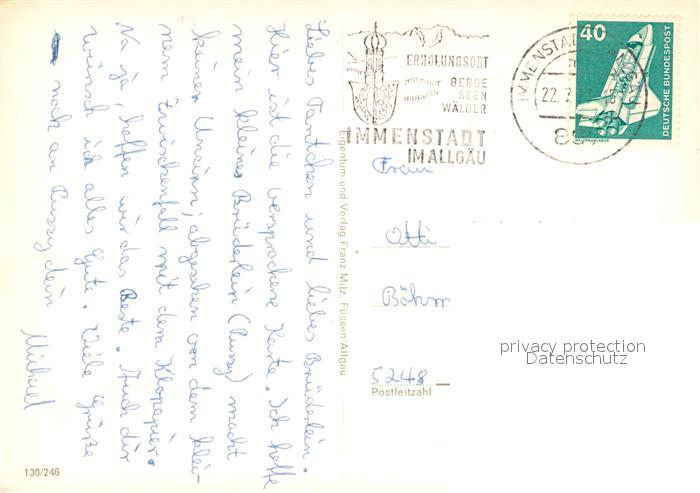 Liebes Tantchen und liebes Brüderlein.
Hier ist die versprochene Karte. Ich hoffe
mein kleines Brüderlein (Pussy) macht
keinen Unsinn; abgesehen von dem klei-
nem Zwischenfall mit dem Klopapier.
Na ja, hoffen wir das Beste. Auch dir
wünsch ich alles Gute. Viele Grüße
noch an Pussy dein
Michael
130/246
Eigentum und Verlag Franz Milz, Füssen/Allgäu
ERHOLUNGSORT
BERGE
SEEN
WÄLDER
IMMENSTADT
IM ALLGÄU
IMMENSTADT
22.
40
DEUTSCHE BUNDESPOST
WELTRAUMLABOR
Frau
Otti
Böhm
5248
Postleitzahl
privacy protection
Datenschutz